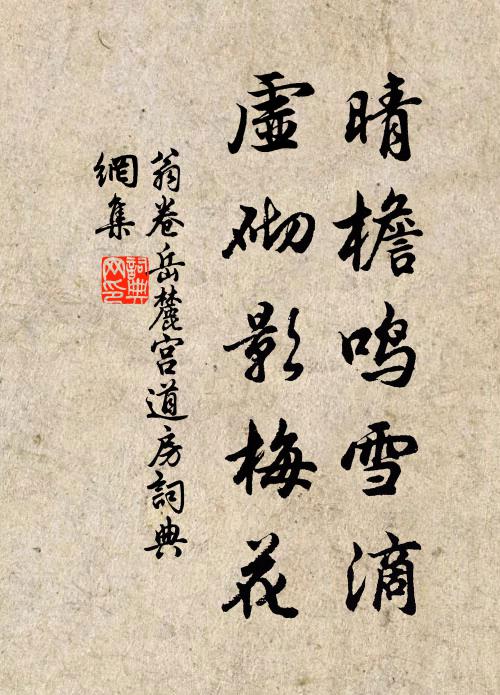 晴檐鸣雪滴
虚砌影梅花
翁卷岳麓宫道房詞典
網集
詞典
网印